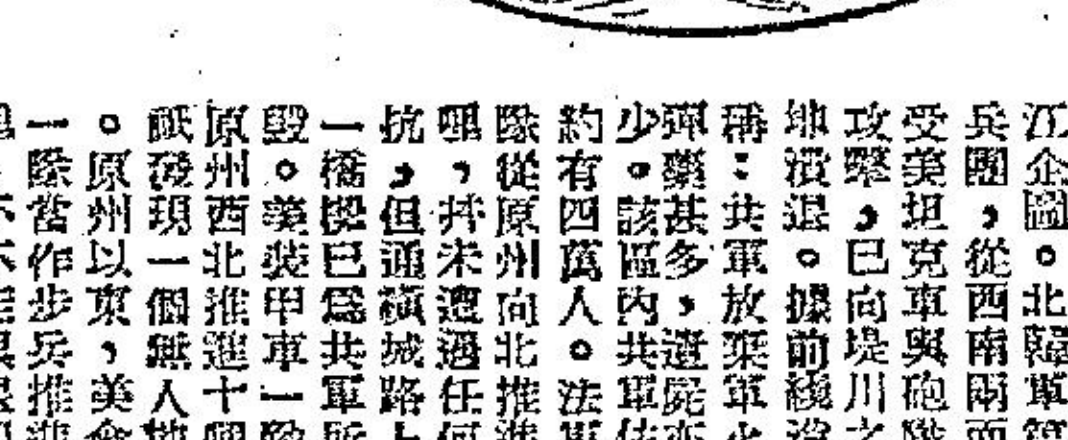 江企圖。北韓軍
兵團，從西南兩面
受美坦克車與砲隊
攻擊，已向堤川之
地潰退。據前綫
稱：共軍放棄軍火
彈藥甚多，遺屍亦
少。該區內共軍估
約有四萬人。法軍
隊從原州向北推進
哩，并未遭遇任何
抗，但通橫城路上
一橋樑已爲共軍所
毀。美裝甲車一隊
原州西北推進十
祇發現一個無人地
。原州以東，美
一隊當作步兵推進